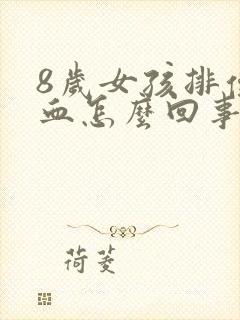 8歲女孩排便
血怎麼回事
荷菱